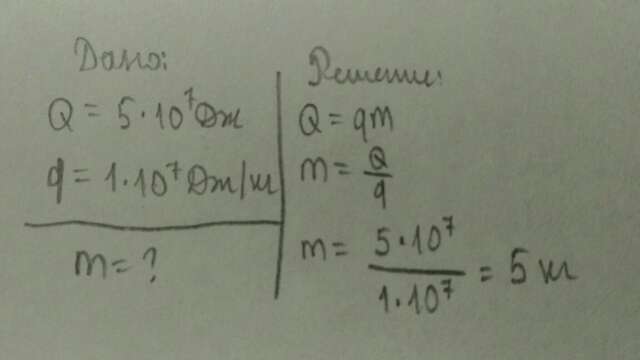 Дано:
Q = 5·10⁷ Дж
q = 1·10⁷ Дж/кг
m = ?
Решение:
Q = qm
m = Q/q
m = 5·10⁷/1·10⁷ = 5 кг